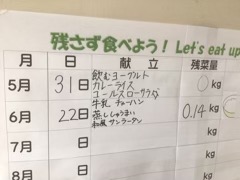 残さず食べよう! Let's eat up
月 日 献立 残菜量
5月 31日 飲むヨーグルト カレーライス コールスローサラダ 0kg
6月 22日 牛乳 チャーハン 蒸ししゅうまい 和風サンラータン 0.14kg
7月 日 kg
8月